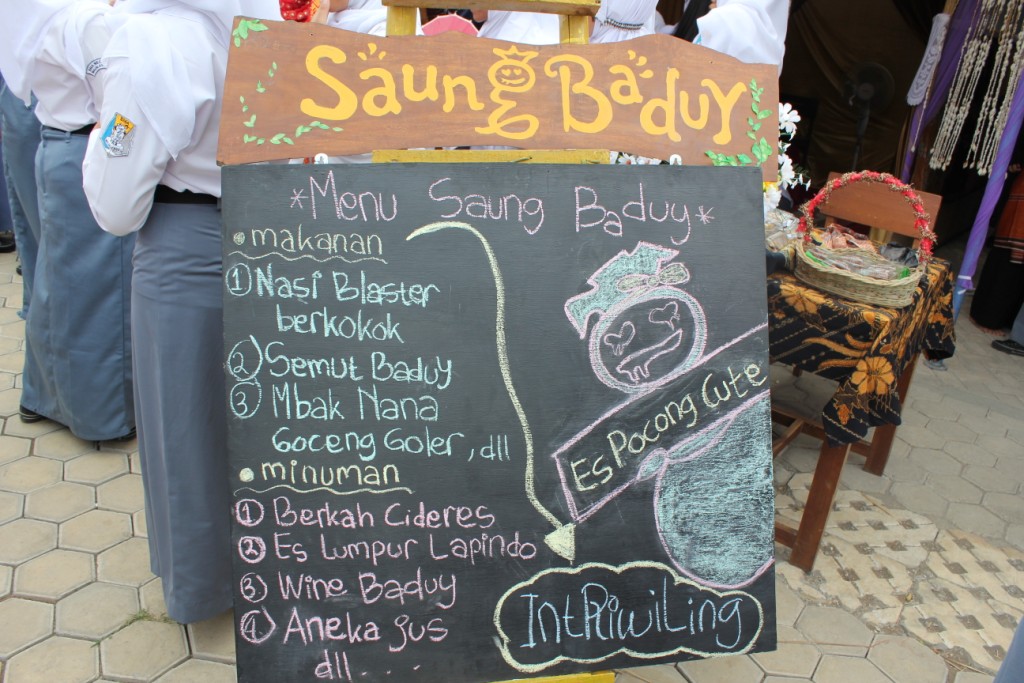 Saung Baduy
*Menu Saung Baduy*
• makanan
① Nasi Blaster
berkokok
② Semut Baduy
③ Mbak Nana
Goceng Goler, dll
• minuman
① Berkah Cideres
② Es Lumpur Lapindo
③ Wine Baduy
④ Aneka jus
dll . . .
Es Pocong Cute
IntRiwiLing